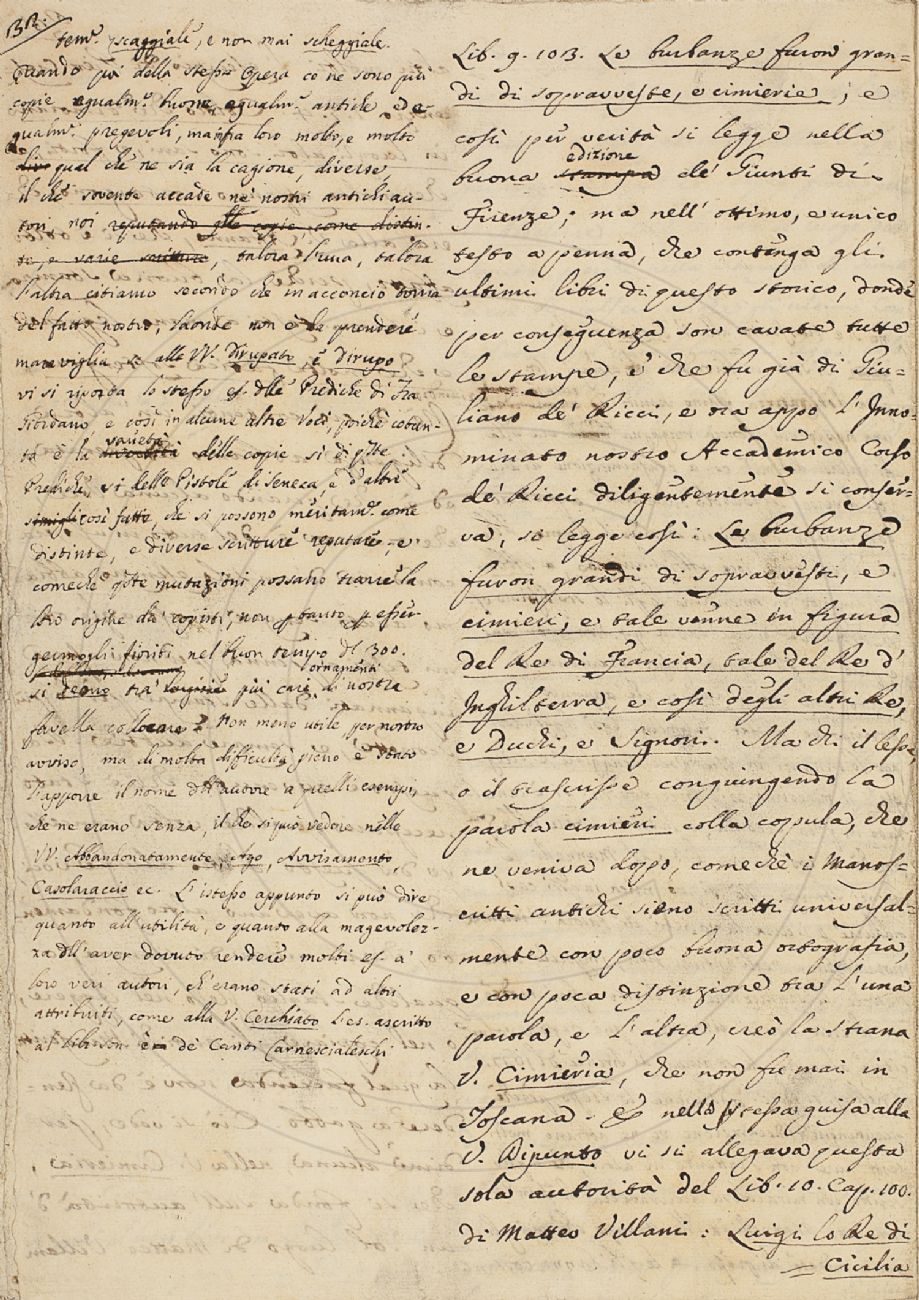 32.
tem.e scaggiale, e non mai scheggiale.
Quando poi della stessa Opera ce ne sono più
copie egualm.e buone, egualm.e antiche ed e-
gualm.e pregevoli, ma fra loro molto, e molto
qual che ne sia la cagione, diverse,
il che sovente accade ne' nostri antichi au-
tori noi reputando q.lle copie, come distin-
te, e varie scritture, talora l'una, talora
l'altra citiamo secondo che in acconcio torna
del fatto nostro; laonde non è da prendere
maraviglia se alle VV. Dirupato, e Dirupo
vi si riporta lo stesso es. d.lle Prediche di Fra
Giordano e così in alcune altre Voci, poichè cotan-
ta è la varietà delle copie sì di q.ste
Prediche, sì delle Pistole di Seneca, e d'altri
così fatte, che si possono meritam.e come
distinte, e diverse scritture reputare, e
comechè q.ste mutazioni possano trarre la
loro origine da' copisti, non p tanto p esser
germogli fioriti nel buon tempo del 300.
ornamenti
si deono tra' più cari di nostra
favella collocare. Non meno utile per nostro
avviso, ma di molta difficultà pieno è
l'apporre il nome dell'autore a quelli esempi,
che ne erano senza, il che si può vedere nelle
VV. Abbandonatamente, Ago, Avvisamento,
Casolaraccio ec. L'istesso appunto si può dire
quanto all'utilità, e quanto alla malagevolez-
za dell'aver dovuto rendere molti es. a'
loro veri autori, ch'erano stati ad altri
attribuiti, come alla V. Cerchiato l'es. ascritto
al Libr. son. è de' Canti Carnescialeschi
Lib. 9. 103. Le burbanze furon gran-
di di sopravveste, e cimierie; e
così per verità si legge nella
edizione
buona stampa de' Giunti di
Firenze; ma nell' ottimo, e unico
testo a penna, che contenga gli
ultimi libri di questo storico, donde
per conseguenza son cavate tutte
le stampe, e che fu già di Giu-
liano de' Ricci, e ora appo l'Inno-
minato nostro Accademico Corso
de' Ricci diligentemente si conser-
va, si legge così: Le burbanze
furon grandi di sopravvesti, e
cimieri, e tale venne in figura
del Re di Francia, tale del Re d'
Inghilterra, e così degli altri Re,
e Duchi, e Signori. Ma chi il lesse,
o il trascrisse congiungendo la
parola cimieri colla copula, che
ne veniva dopo, comechè i Manos-
critti antichi sieno scritti universal-
mente con poco buona ortografia,
e con poca distinzione tra l'una
parola, e l'altra, creò la strana
V. Cimieria, che non fu mai in
Toscana. E nella stessa guisa alla
V. Dipunto vi si allegava questa
sola autorità del Lib. 10. Cap. 100.
di Matteo Villani: Luigi lo Re di
= Cicilia